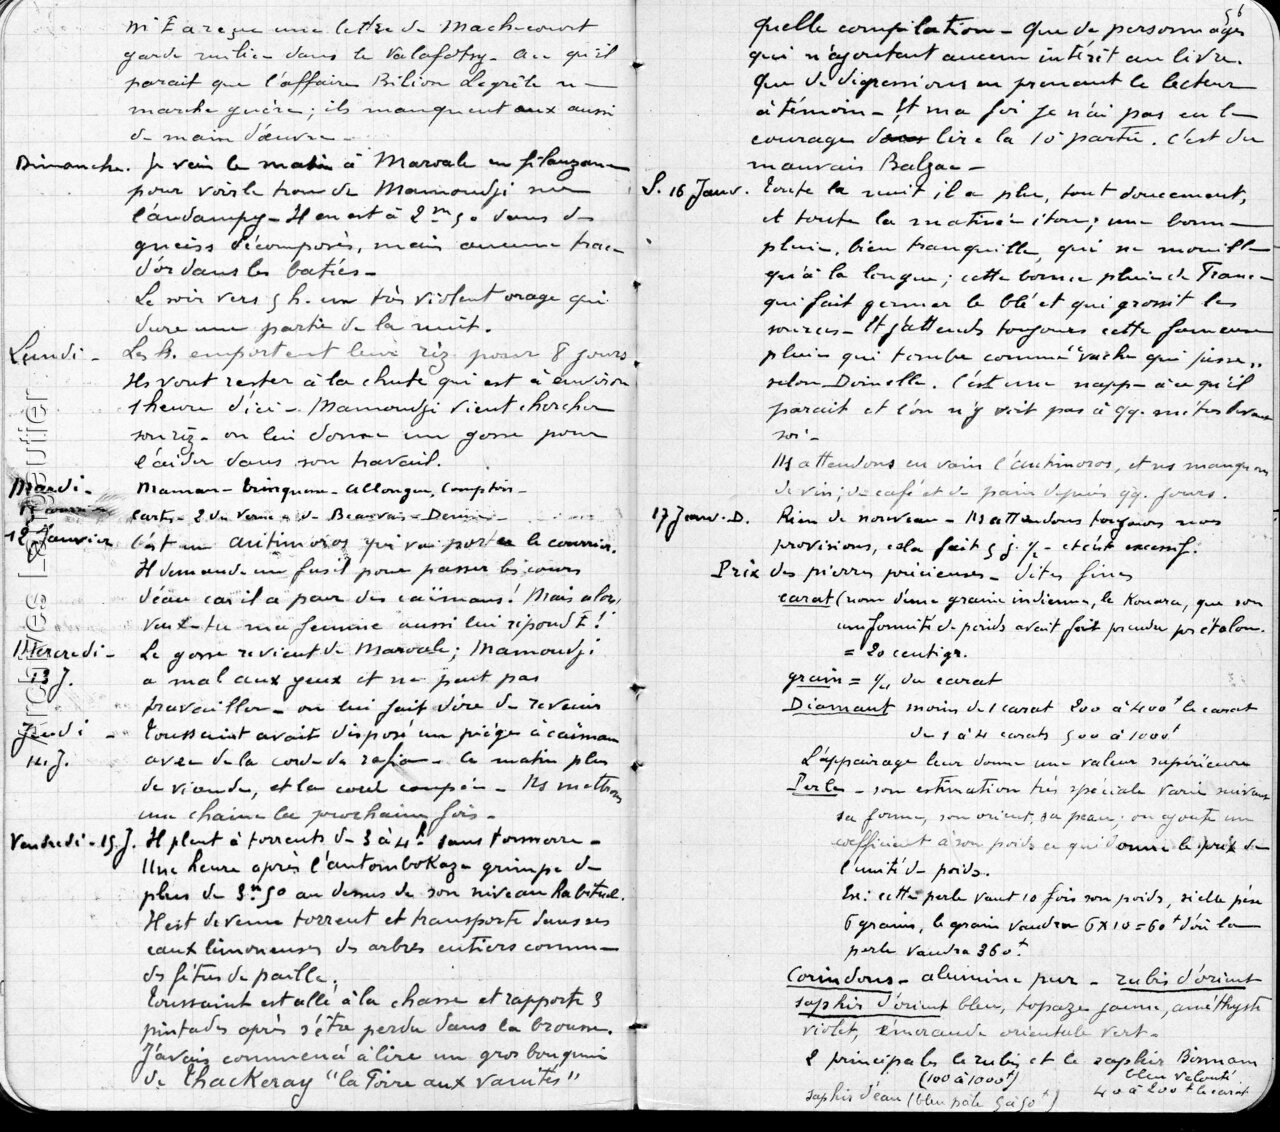 Mr E a reçu une lettre de Machecourt
garde milice dans le Valafotsy. Au qu'il
parait que l'affaire Bilion Legrêle ne
marche guère ; ils manquent eux aussi
de main d'œuvre -
Dimanche. Je vais le matin à Marovale en filanzane
pour voir le trou de Mamoudji sur
l'andampy - Il en est à 2m50 dans des
gneiss décomposés, mais aucune trace
d'or dans les batées -
Le soir vers 5 h. un très violent orage qui
dure une partie de la nuit.
Lundi - Les h. emportent leur riz pour 8 jours
Ils vont rester à la chute qui est à environ
1 heure d'ici - Mamoudji vient chercher
son riz - on lui donne un gosse pour
l'aider dans son travail.
Mardi - Maman - - Allongue, Comptoir -
carte - 2 du Verne - de Beauvais - Denis -
12 Janvier C'est un antimoros qui va porter le courrier.
Il demande un fusil pour passer les cours
d'eau car il a peur des caïmans ! Mais alors
veux-tu ma femme aussi lui répond E !
Mercredi - Le gosse revient de Marovale ; Mamoudji
13 J. a mal aux yeux et ne peut pas
travailler - on lui fait dire de revenir
Jeudi - Toussaint avait disposé un piège à caïman
14 J. avec de la corde de rafia - le matin plus
de viande, et la corde coupée - Ns mettrons
une chaîne la prochaine fois -
Vendredi - 15 J. Il pleut à torrents de 3 à 4h sans tonnerre -
Une heure après l'antombokaze grimpe de
plus de 3m50 au dessus de son niveau habituel.
Il est devenu torrent et transporte dans ses
eaux limoneuses des arbres entiers comme
des fétus de paille.
Toussaint est allé à la chasse et rapporte 3
pintades après s'être perdu dans la brousse.
J'avais commencé à lire un gros bouquin
de Thackeray "la Foire aux vanités"
56
quelle compilation - Que de personnages
qui n'ajoutent aucun intérêt au livre.
Que de digressions en prenant le lecteur
à témoin - Et ma foi je n'ai pas eu le
courage de lire la 10e partie. C'est du
mauvais Balzac -
S. 16 Janv. Toute la nuit il a plu, tout doucement,
et toute la matinée itou ; une bonne
pluie, bien tranquille, qui ne mouille
qu'à la longue ; cette bonne pluie de France
qui fait germer le blé et qui grossit les
sources - Et j'attends toujours cette fameuse
pluie qui tombe comme "vache qui pisse"
selon Doinelle. C'est une nappe à ce qu'il
parait et l'on n'y voit pas à qq. mètres devant
soi -
Ns attendons en vain l'antimoros, et ns manquons
de vin, de café et de pain depuis qq. jours.
17 Janv. D. Rien de nouveau - Ns attendons toujours nos
provisions, cela fait 5 j. ½ - et c'est excessif.
Prix des pierres précieuses - dites fines
carat (nom d'une graine indienne, le Kouara, que son
uniformité de poids avait fait prendre pr étalon.
= 20 centigr.
grain = ¼ du carat
Diamant moins de 1 carat 200 à 400f le carat
de 1 à 4 carats 500 à 1000f
L'appairage leur donne une valeur supérieure
Perle - son estimation très spéciale varie suivant
sa forme, son orient, sa peau ; on ajoute un
coefficient à son poids ce qui donne le prix de
l'unité de poids.
Ex : cette perle vaut 10 fois son poids, si elle pèse
6 grains, le grain vaudra 6 X 10 = 60f d'où la
perle vaudra 360f.
Corindons - alumine pure - rubis d'orient
saphir d'orient bleu, topaze jaune, améthyste
violet, émeraude orientale vert -
2 principales le rubis et le saphir Birman
(100 à 1000f) bleu velouté
saphir d'eau (bleu pâle 5 à 50f) 40 à 200f le carat
Archives Largeautier